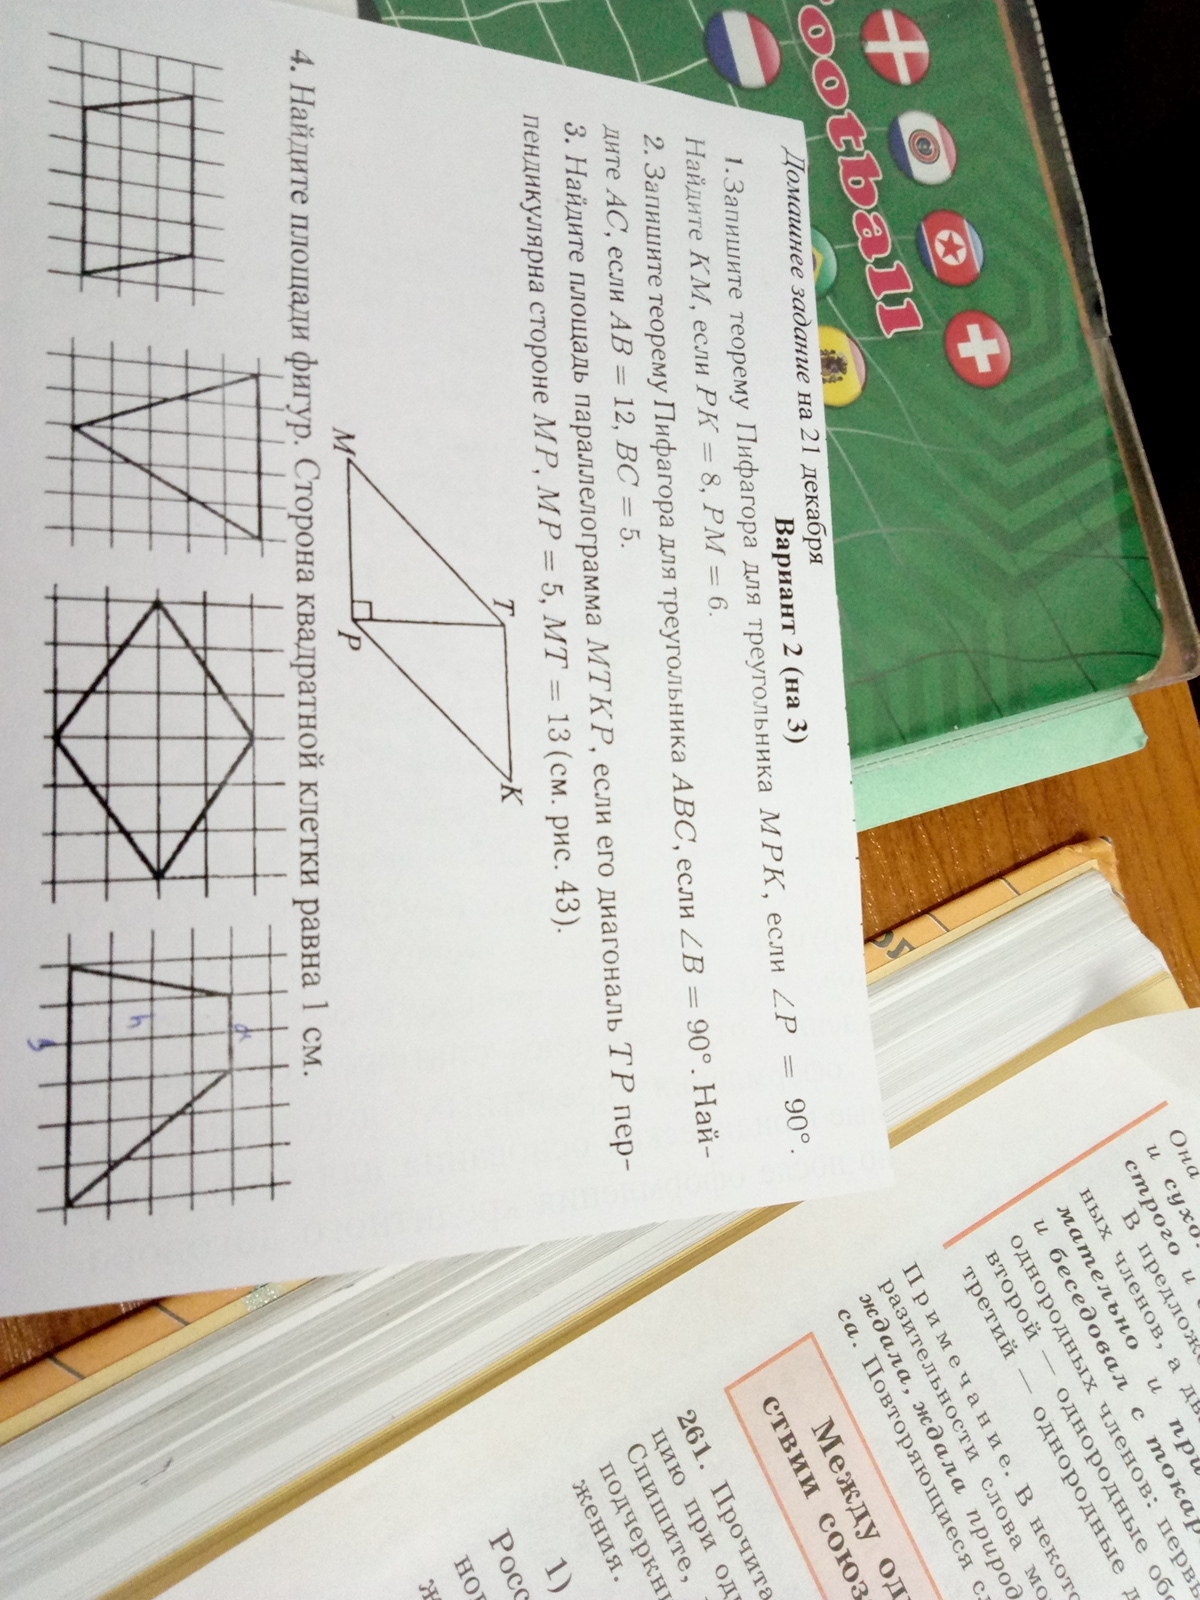 Домашнее задание на 21 декабря
Вариант 2 (на 3)
1.Запишите теорему Пифагора для треугольника MPK, если ∠P = 90°.
Найдите KM, если PK = 8, PM = 6.
2. Запишите теорему Пифагора для треугольника ABC, если ∠B = 90°. Най-
дите AC, если AB = 12, BC = 5.
3. Найдите площадь параллелограмма MTKP, если его диагональ TP пер-
пендикулярна стороне MP, MP = 5, MT = 13 (см. рис. 43).
T
K
M
P
4. Найдите площади фигур. Сторона квадратной клетки равна 1 см.
h
ootball
Она
и сухо.
строго и
В предлож
ных членов, а дв
мательно и при
и беседовал с токар
однородных членов: перв
второй — однородные обо
третий — однородные
Примечание. В некото
разительности слова мо
ждала, ждала природ
са. Повторяющиеся сл
Между од
ствии союз
261. Прочита
цию при од
Спишите,
подчеркн
жения.
1)
Росс